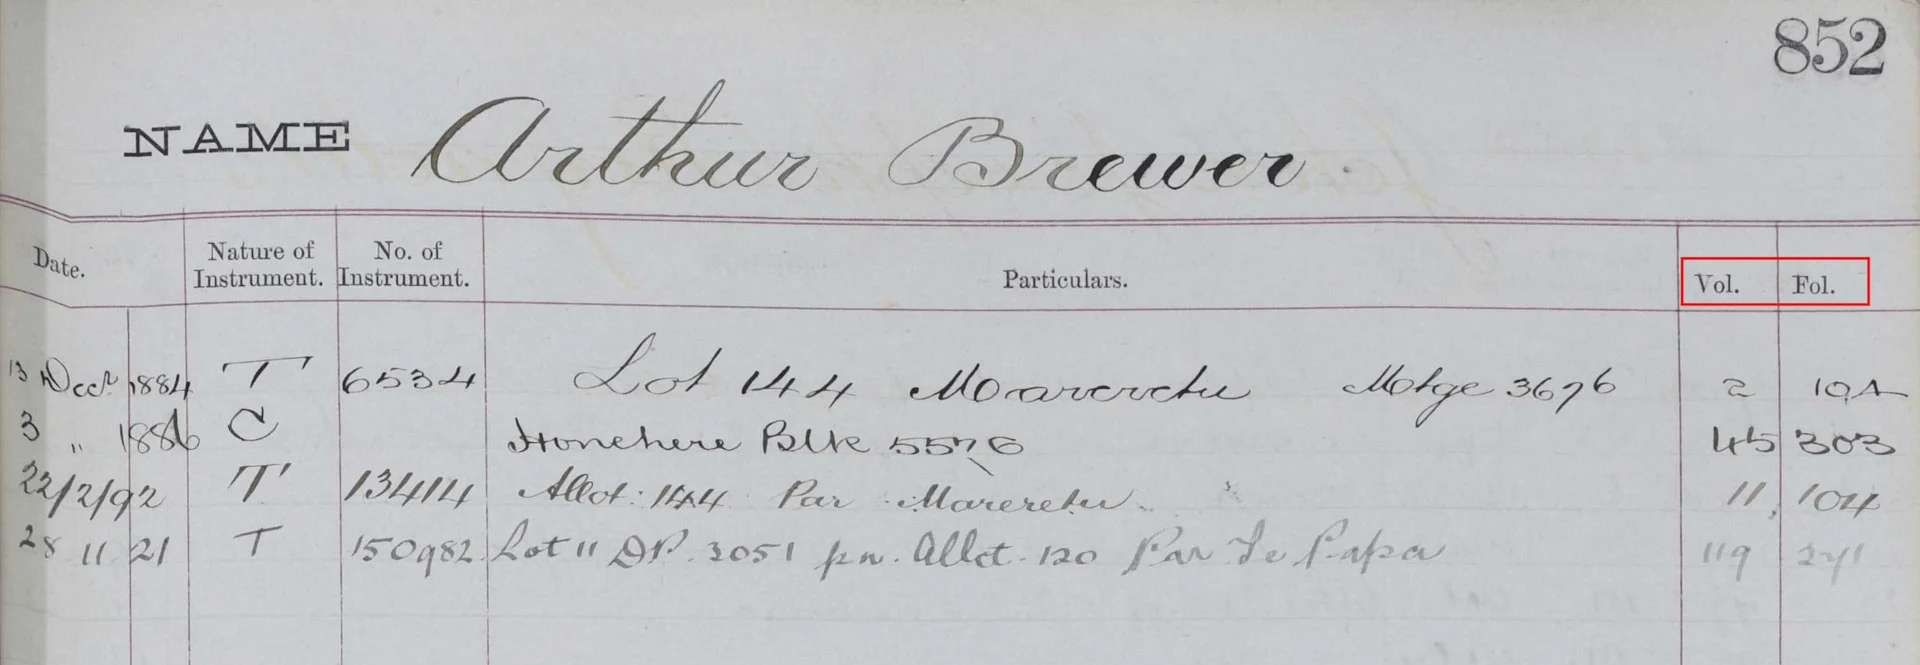 852
NAME Arthur Brewer.
Date. Nature of Instrument. No. of Instrument. Particulars. Vol. Fol.
13 Decr 1884 T 6534 Lot 144 Mareretu Motge 3676 2 104
3 " 1886 C Blk 5576 45 303
22/2/92 T 13414 Allot: 144 Par Mareretu 11, 104
28 11 21 T 150982 Lot 11 DP. 3051 pn. Allot. 120 Par Te Papa 119 241